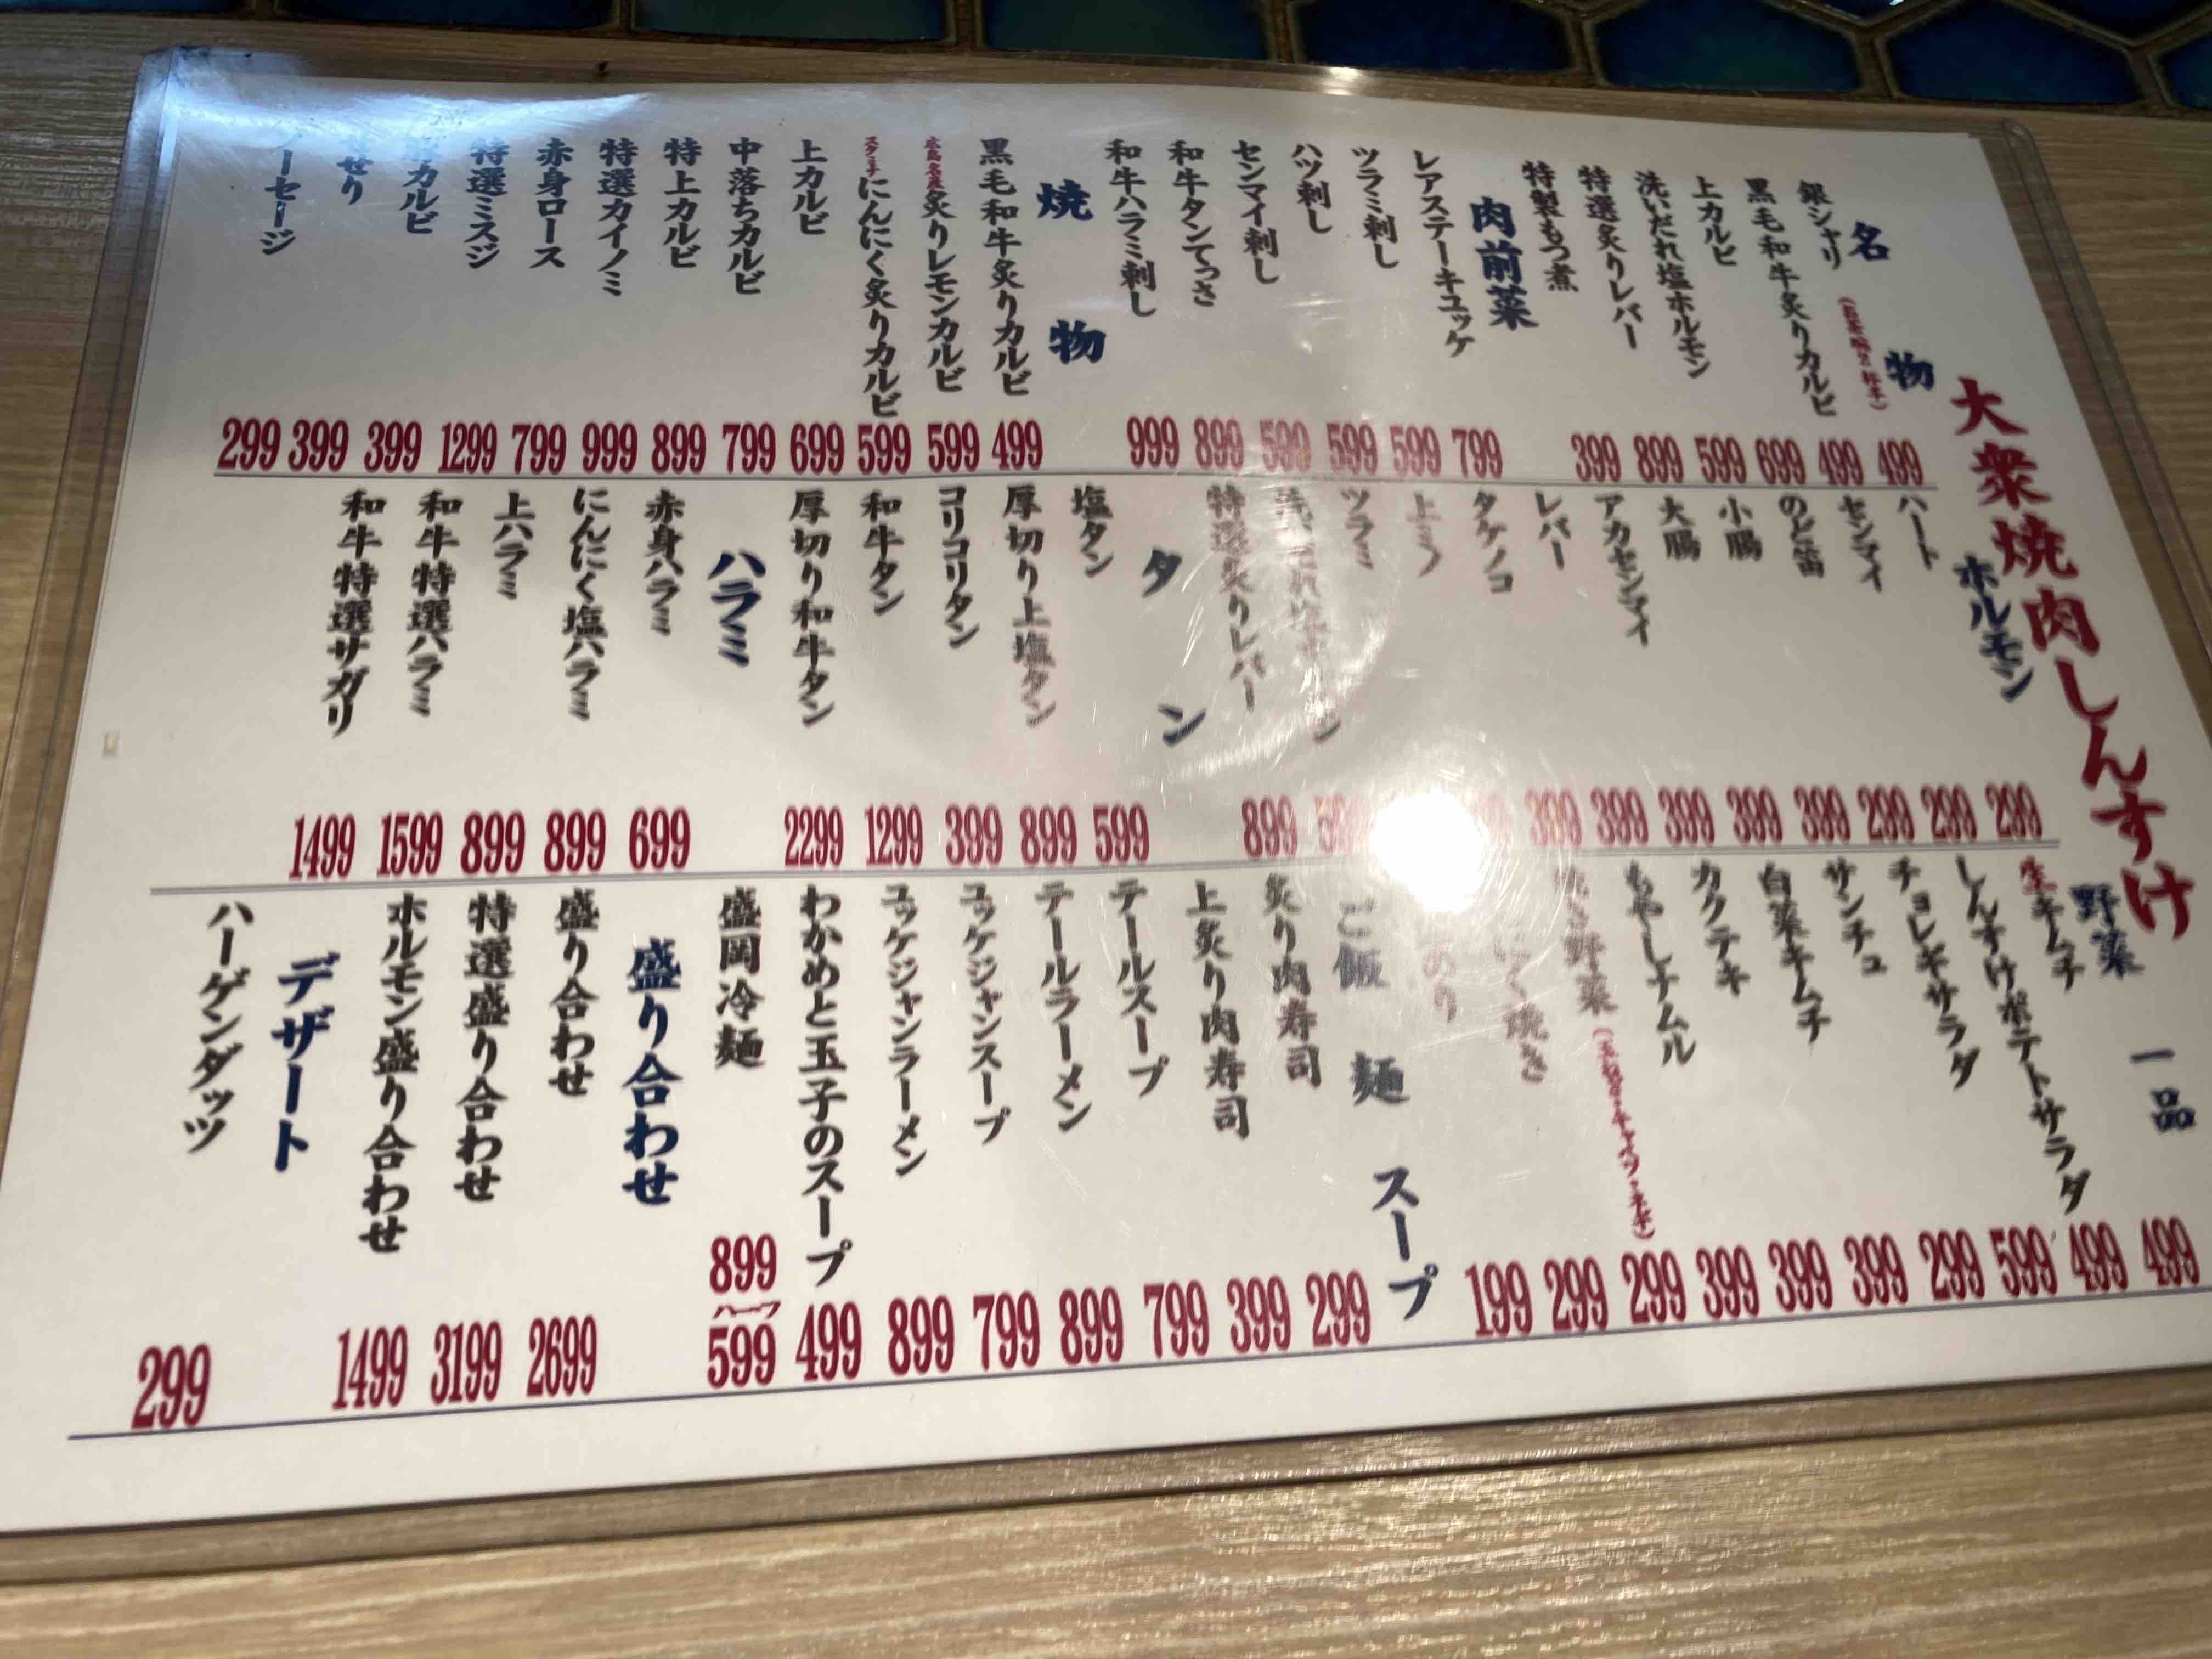 大衆焼肉しんすけ
名物
銀シャリ (お茶碗2杯半) 499
黒毛和牛炙りカルビ 499
上カルビ 699
洗いだれ塩ホルモン 599
特選炙りレバー 899
特製もつ煮 399
肉前菜
レアステーキユッケ 799
ツラミ刺し 599
ハツ刺し 599
センマイ刺し 599
和牛タンてっさ 899
和牛ハラミ刺し 999
焼物
黒毛和牛炙りカルビ 499
広島名産 炙りレモンカルビ 599
スタミナ にんにく炙りカルビ 599
上カルビ 699
中落ちカルビ 799
特上カルビ 899
特選カイノミ 999
赤身ロース 799
特選ミスジ 1299
カルビ 399
せせり 399
ソーセージ 299
ホルモン
ハート 299
センマイ 299
のど笛 299
小腸 399
大腸 399
アカセンマイ 399
レバー 399
タケノコ 399
上ミノ
ツラミ
洗いだれ塩ホルモン
特選炙りレバー 899
タン
塩タン 599
厚切り上塩タン 899
コリコリタン 399
和牛タン 1299
厚切り和牛タン 2299
ハラミ
赤身ハラミ 699
にんにく塩ハラミ 899
上ハラミ 899
和牛特選ハラミ 1599
和牛特選サガリ 1499
野菜 一品
生キムチ 499
しんすけポテトサラダ 499
チョレギサラダ 599
サンチュ 299
白菜キムチ 399
カクテキ 399
もやしナムル 399
焼き野菜 (玉ねぎ・キャベツ・ネギ) 299
にく焼き 299
のり 199
ご飯 麺 スープ
炙り肉寿司 299
上炙り肉寿司 399
テールスープ 799
テールラーメン 899
ユッケジャンスープ 799
ユッケジャンラーメン 899
わかめと玉子のスープ 499
盛岡冷麺 899
ハーフ 599
盛り合わせ
盛り合わせ 2699
特選盛り合わせ 3199
ホルモン盛り合わせ 1499
デザート
ハーゲンダッツ 299